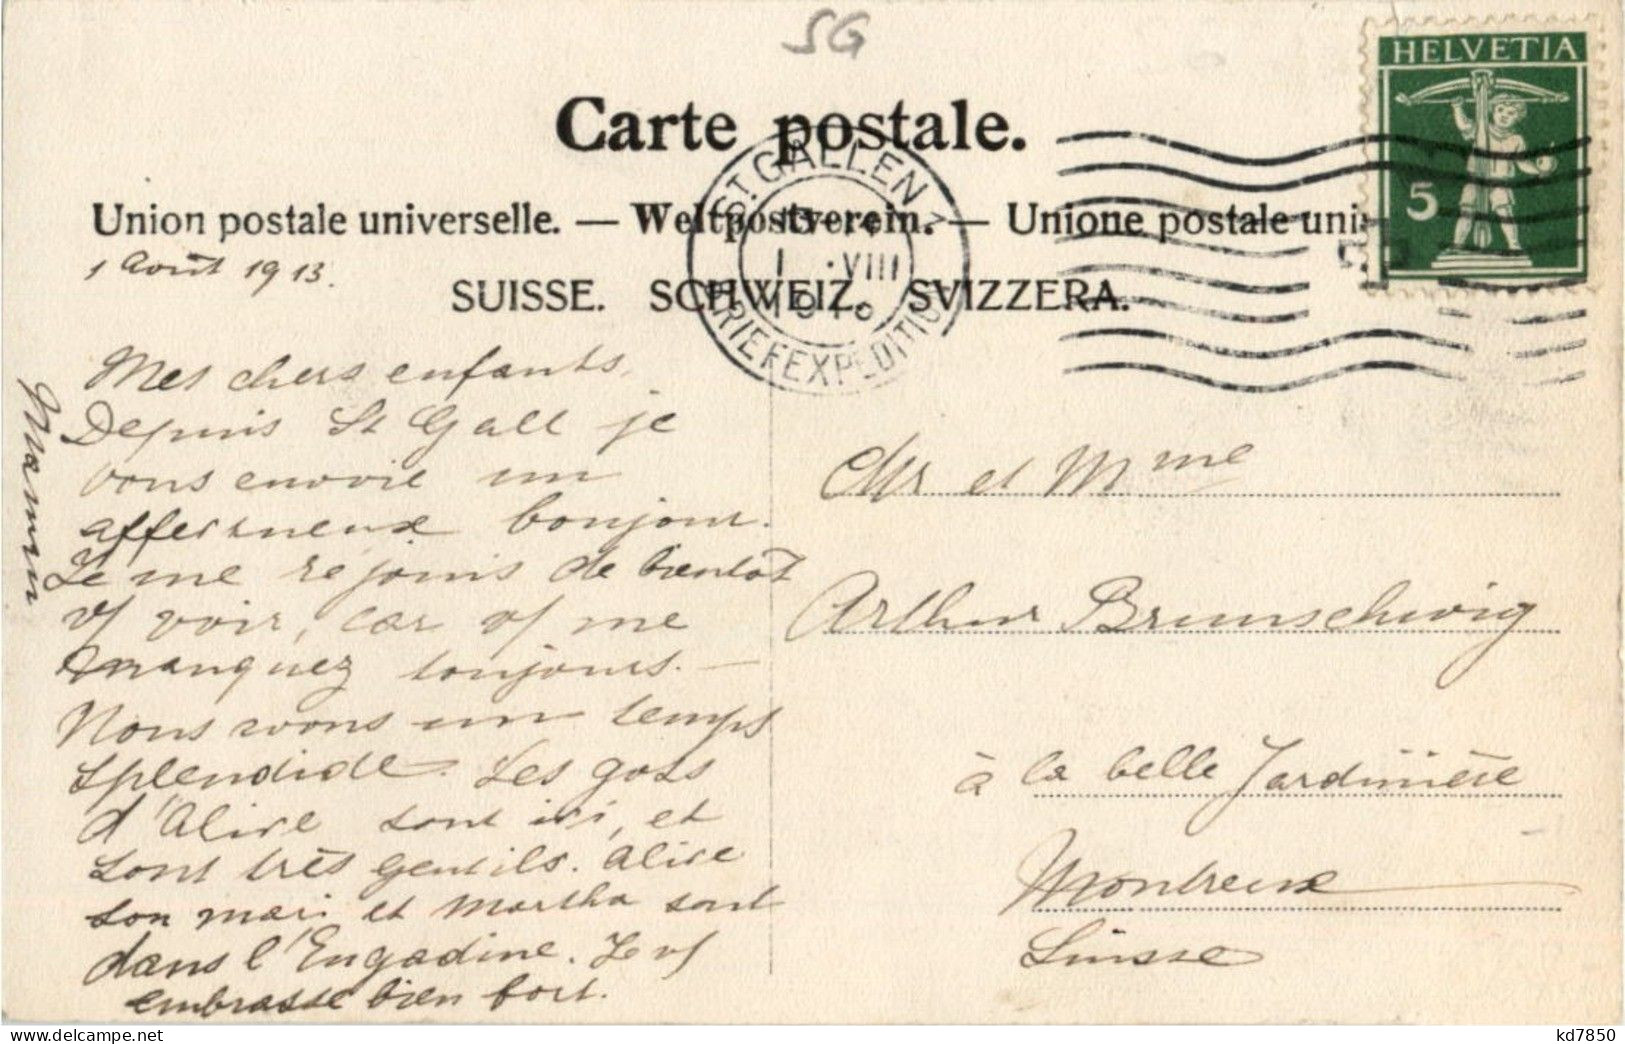 SG
HELVETIA
5
Carte postale.
Union postale universelle. — Weltpostverein. — Unione postale uni
SUISSE. SCHWEIZ. SVIZZERA.
ST. GALLEN
1 .VIII
BRIEFEXPEDITION
1 Août 1913.
Mes chers enfants,
Depuis St Gall je
vous envoie un
affectueux bonjour.
Je me réjouis de bientôt
vs voir, car vs me
manquez toujours. —
Nous avons un temps
splendide. Les goss
d'Alice sont ici, et
sont très gentils. Alice
son mari et Martha sont
dans l'Engadine. Je vs
embrasse bien fort.
Maman
Mr et Mme
Arthur Brunschwig
à la belle Jardinière
Montreux
Suisse
kd7850